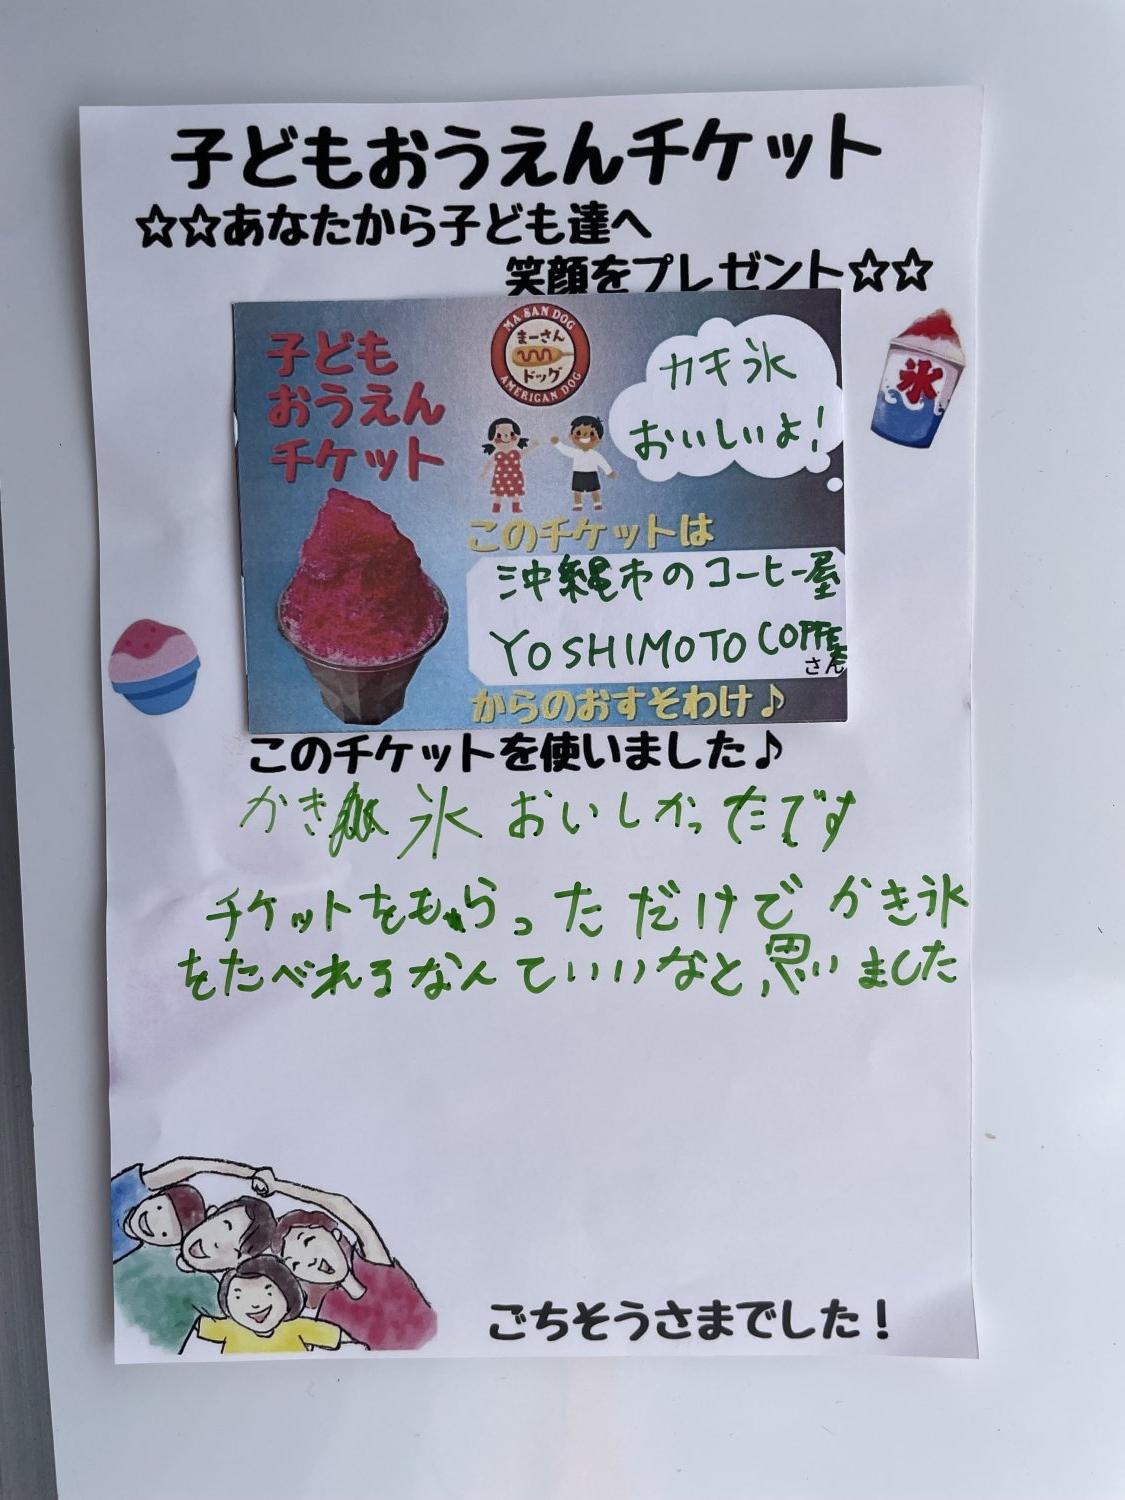 子どもおうえんチケット
☆☆あなたから子ども達へ
笑顔をプレゼント☆☆
子ども
おうえん
チケット
MA SAN DOG
まーさん
ドッグ
AMERICAN DOG
カキ氷
おいしいよ!
氷
このチケットは
沖縄市のコーヒー屋
YOSHIMOTO COFFEE
さん
からのおすそわけ♪
このチケットを使いました♪
かき氷 おいしかったです
チケットをもらっただけで かき氷
をたべれるなんていいなと思いました
ごちそうさまでした!